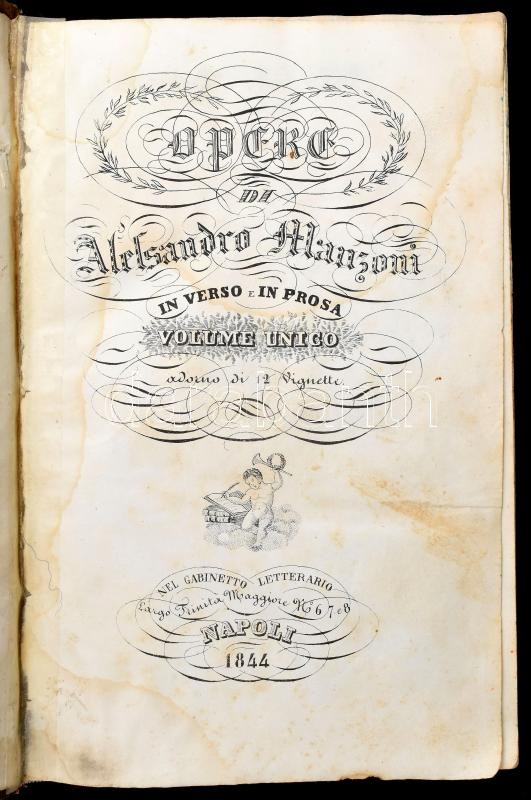 OPERE
DI
Alessandro Manzoni
IN VERSO E IN PROSA
VOLUME UNICO
adorno di 12 Vignette.
darabanth
NEL GABINETTO LETTERARIO
Largo Trinità Maggiore Nº 6 7 e 8
NAPOLI
1844